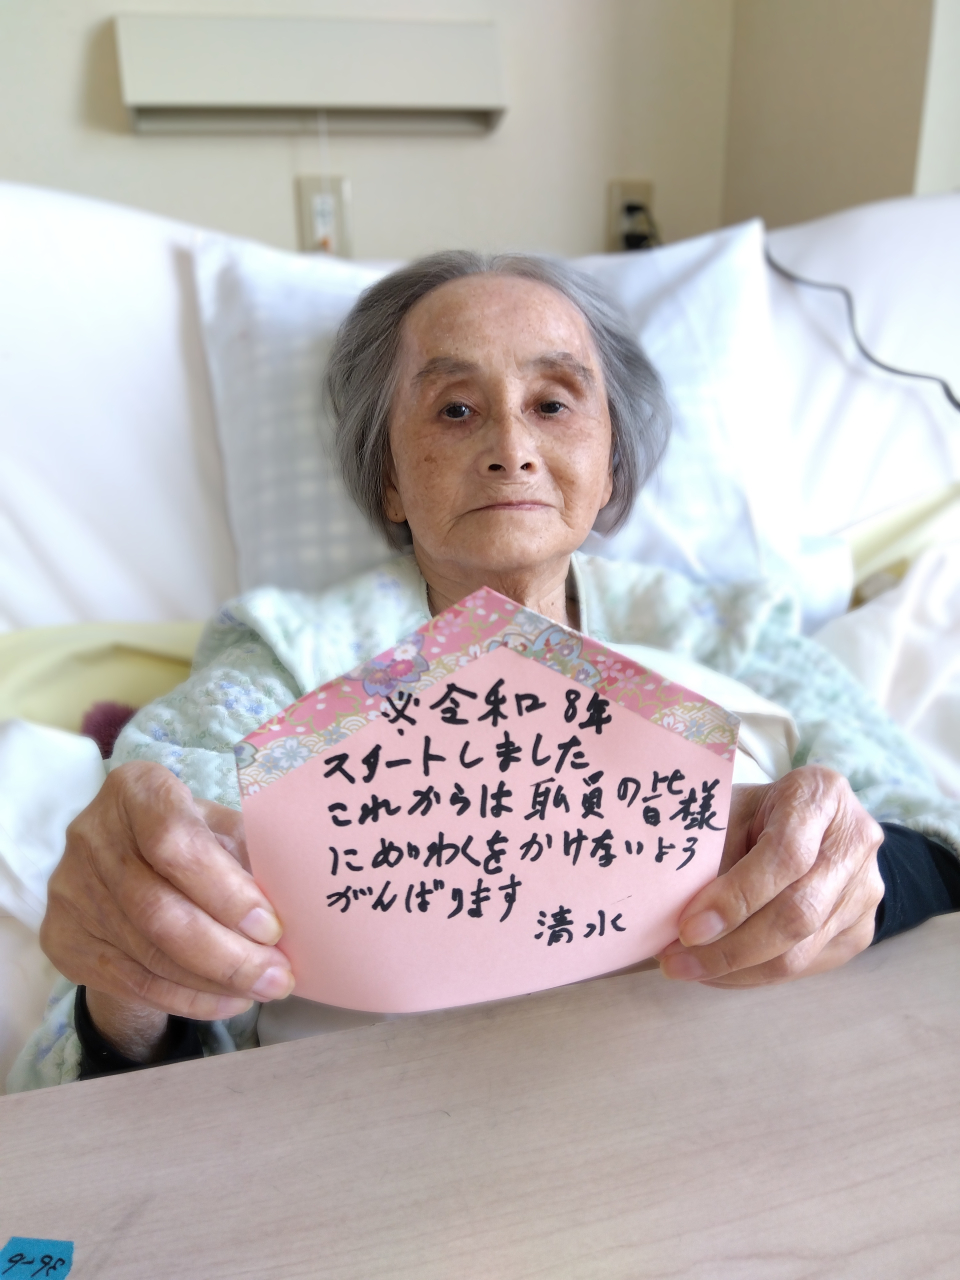 ※令和8年
スタートしました
これからは職員の皆様
にめいわくをかけないよう
がんばります
清水